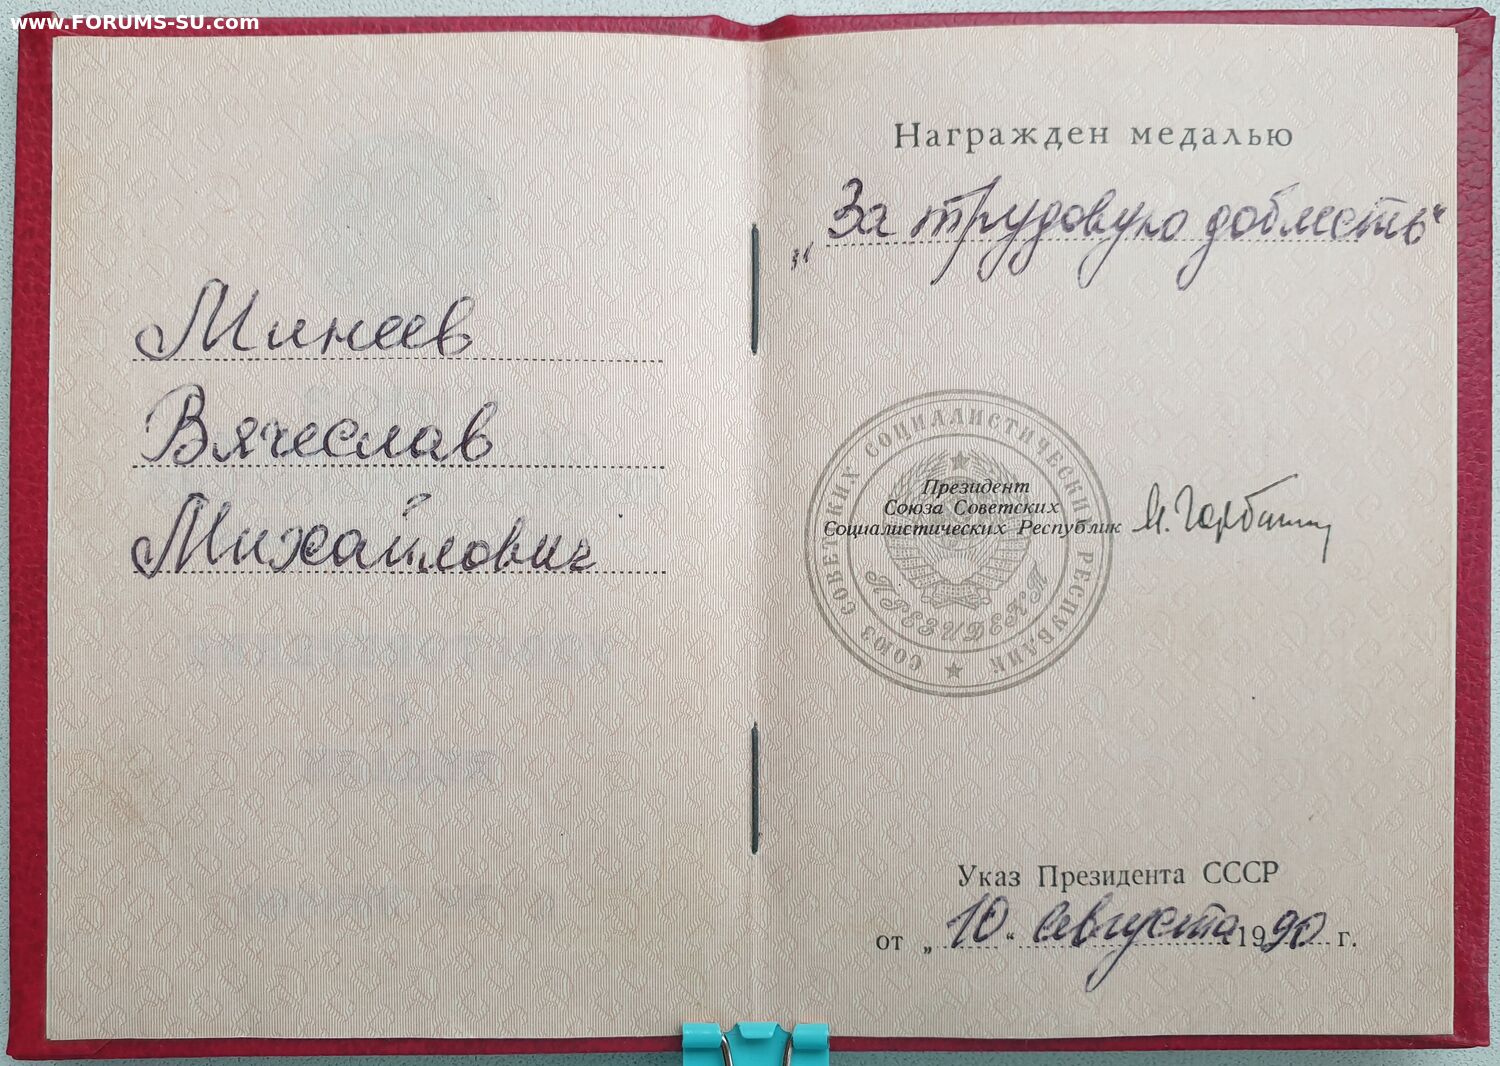 www.FORUMS-SU.com
Минеев
Вячеслав
Михайлович
Награжден медалью
„За трудовую доблесть“
СОЮЗ СОВЕТСКИХ СОЦИАЛИСТИЧЕСКИХ РЕСПУБЛИК
ПРЕЗИДЕНТ
Президент
Союза Советских
Социалистических Республик
М. Горбачев
Указ Президента СССР
от „10“ августа 1990 г.